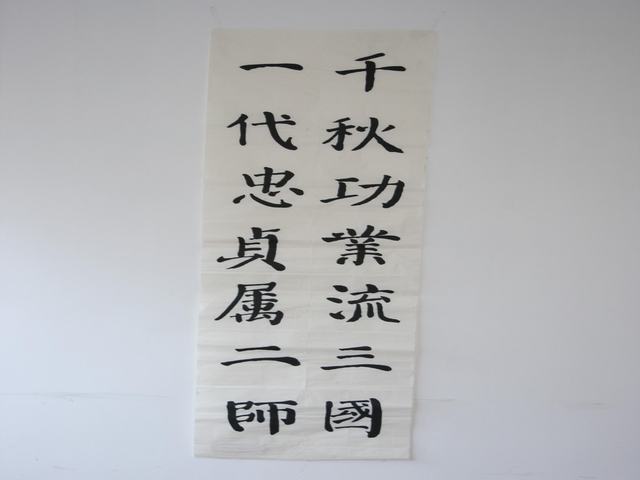 千秋功業流三國
一代忠貞属二師